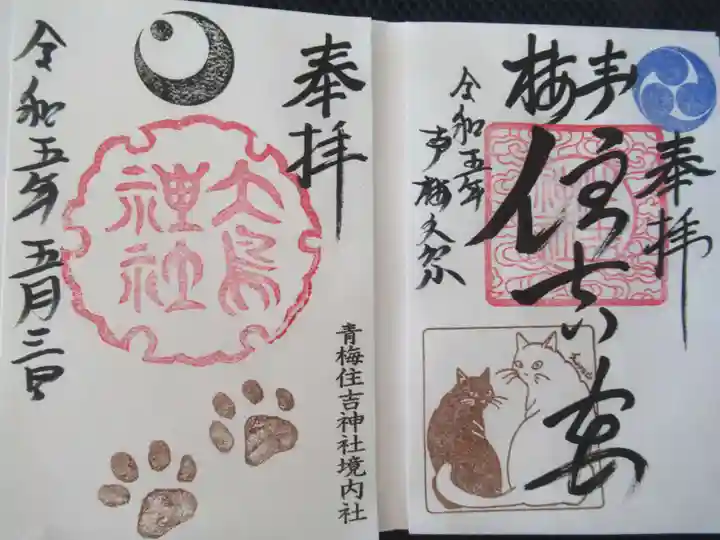 奉拝
大鳥
神社
令和五年五月三日
青梅住吉神社境内社
奉拝
青梅
住吉
令和五年
青梅大祭